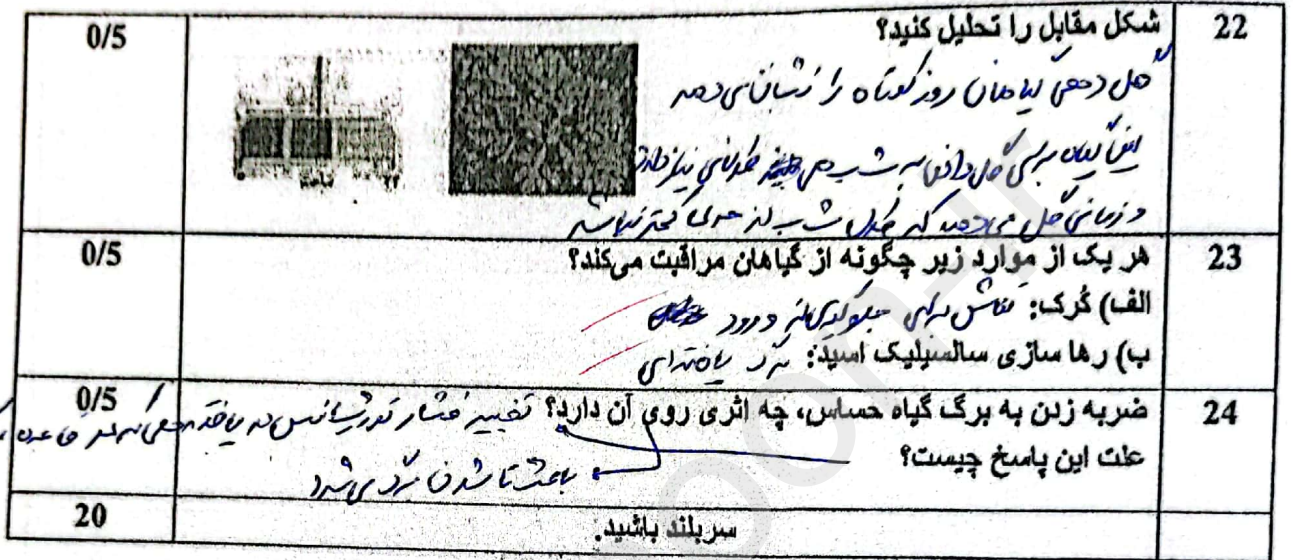 22
شکل مقابل را تحلیل کنید؟
0/5
گل دهی گیاهان روز کوتاه را نشان می دهد
این گیاه برای گل دادن به شب های طولانی نیاز دارد
و زمانی گل می دهد که طول شب از حدی کمتر نباشد
23
هر یک از موارد زیر چگونه از گیاهان مراقبت می‌کند؟
0/5
الف) کُرک: نقش برای جلوگیری از ورود
ب) رها سازی سالسیلیک اسید: مرگ یاخته‌ای
24
ضربه زدن به برگ گیاه حساس، چه اثری روی آن دارد؟ تغییر فشار تورژسانس در یاخته هایی که در قاعده
0/5
علت این پاسخ چیست؟
باعث تا شدن برگ می شود
سربلند باشید.
20